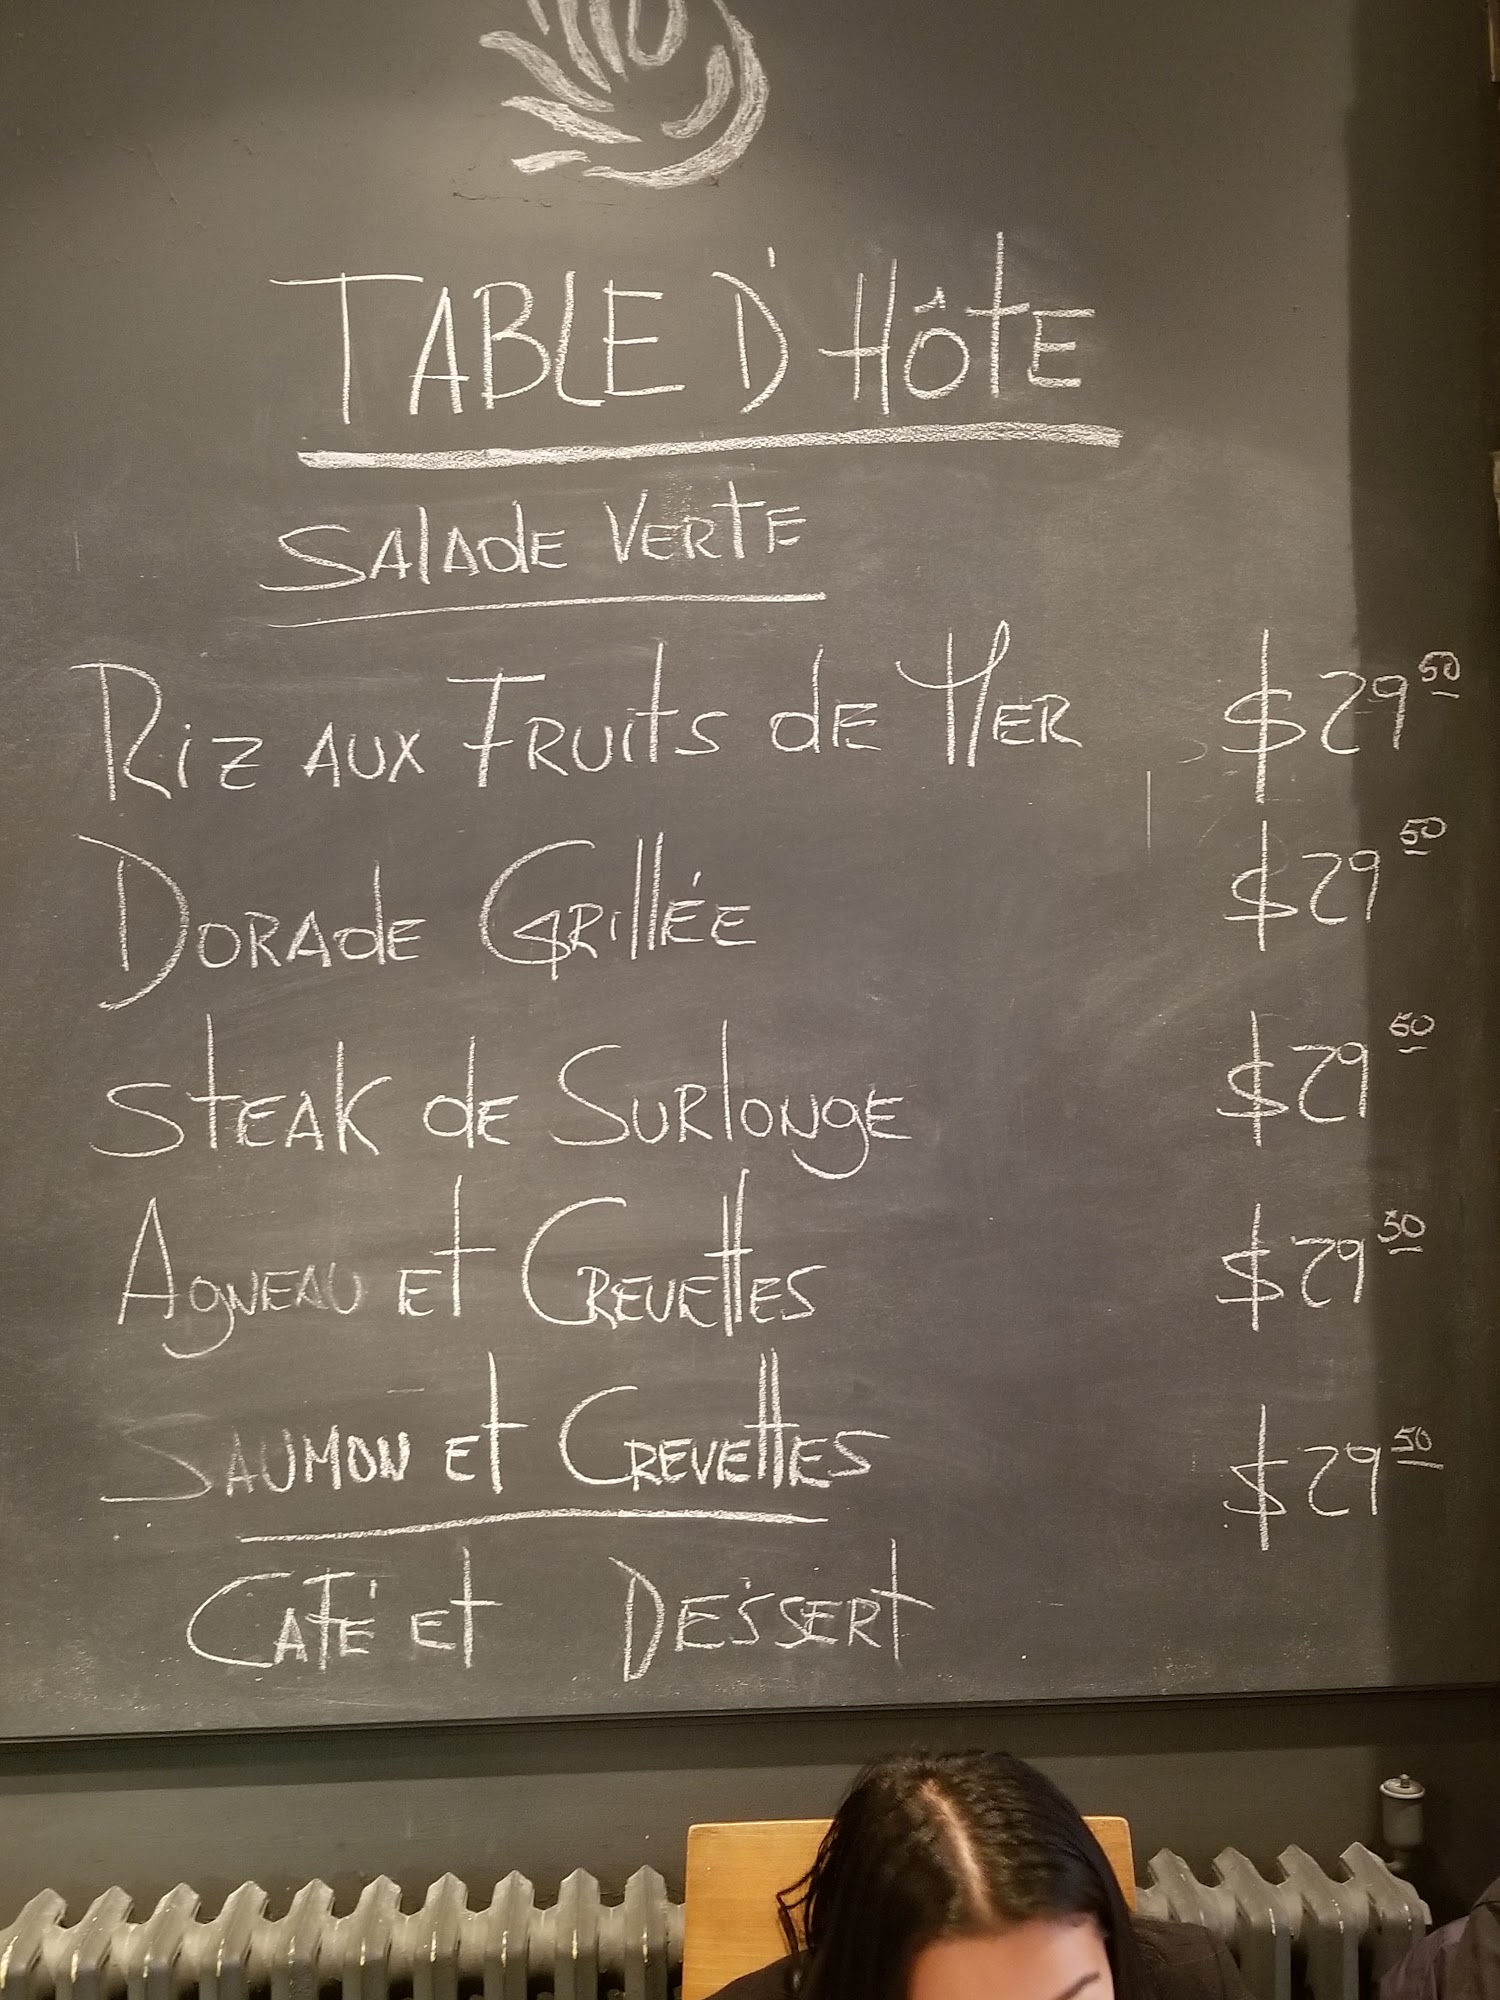 TABLE D'HÔTE
SALADE VERTE
RIZ AUX FRUITS DE MER $29 50
DORADE GRILLÉE $29 50
STEAK DE SURLONGE $29 50
AGNEAU ET CREVETTES $29 50
SAUMON ET CREVETTES $29 50
CAFÉ ET DESSERT